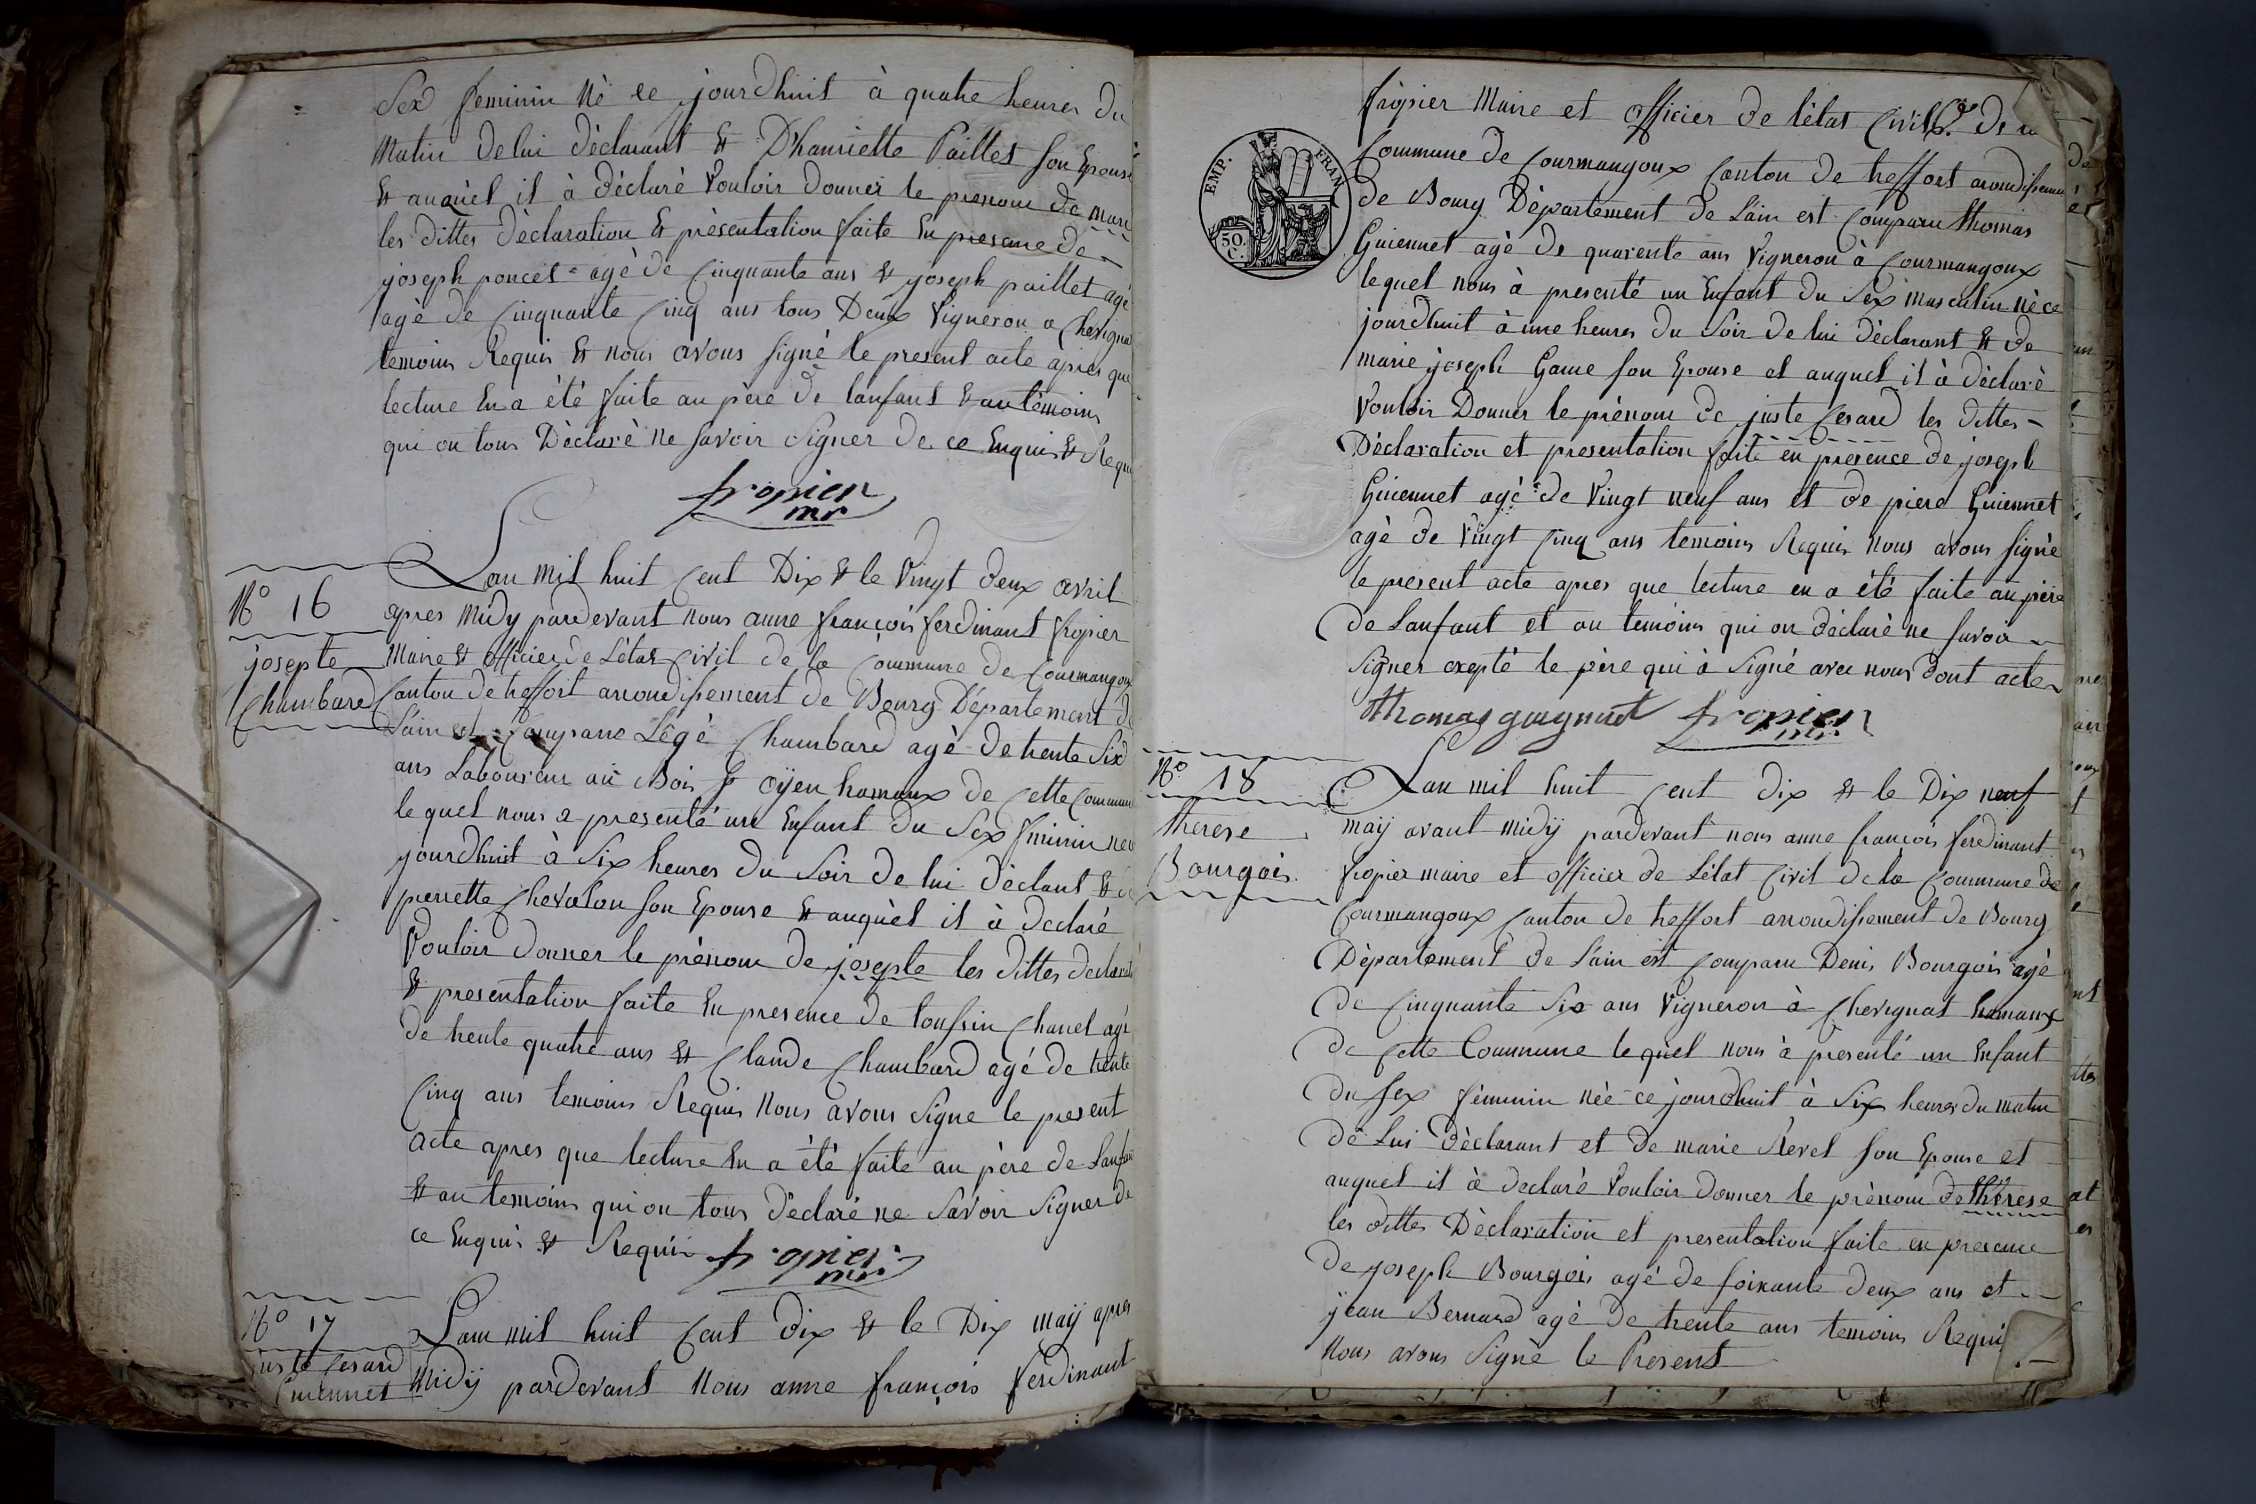 Sex feminin Né ce jourdhuit à quatre heures du
Matin de lui déclarant & D'hanriette Paillet son Epouse
& auquel il à déclaré Vouloir donner le prenom de mari
les dittes déclaration & présentation faite En presance de
joseph poncet agé de Cinquante ans & joseph paillet agé
agé de Cinquante Cinq ans tous Deux Vigneron a Chevigna
temoins Requis & nous avons signé le present acte apres que
lecture En a été faite au père de lanfant & au témoins
qui on tous Déclaré Ne savoir Signer de ce Enquis & Requi
fropier
mr
Lan mil huit Cent Dix & le Vingt deux avril
N° 16
apres Midy pardevant nous anne françois ferdinant fropier
josepte
Chambard
Maire & Officier de L'état Civil de la Commune de Courmangoux
Canton de treffort arrondissement de Bourg Département de
L'ain est Comparu Légé Chambard agé de trente Six
ans Laboureur au Bois & oÿen hamaux de Cette Commune
le quel nous a presenté un Enfant du Sex fminin née
jourdhuit à Six heures du Soir de lui déclant & de
perrette Chevalon son Epouse & auquèl il à declaré
Vouloir donner le prénom de josepte les dittes declarati
& presentation faite En presence de toussin Chanel agé
de trente quatre ans & Claude Chambard agé de trente
Cinq ans temoins Requis Nous avons Signe le present
acte apres que lecture En a été faite au père de Lanfan
& au temoins qui on tous Déclaré ne Savoir Signer de
ce Enquis & Requis fropier
mr
N° 17
Lan mil huit Cent dix & le Dix maÿ apres
juste Cesard
Guiennet
Midÿ pardevant Nous anne françois ferdinant
fropier Maire et Officier de l'état Civil de la
EMP. FRAN
50.
C.
Commune de Courmangoux Canton de treffort arondissement
de Bourg Département de L'ain est Comparu thomas
Guiennet agé de quarente ans Vigneron à Courmangoux
lequel nous à presenté un Enfant du Sex masculin né ce
jourdhuit à une heures du Soir de lui déclarant & de
marie joseph Game son Epouse et auquel il à déclaré
Vouloir Donner le prénom de juste Cesard les dittes
Déclaration et presentation faite en presence de joseph
Guiennet agé de Vingt neuf ans et de piere Guiennet
agé de Vingt Cinq ans temoins Requis Nous avons signé
le present acte apres que lecture en a été faite au père
de Lanfant et au temoins qui on déclaré ne savoir
Signer exepté le père qui à Signé avec nous dont acte
thomas guigniet fropier
mr
N° 18
Lan mil huit Cent dix & le Dix neuf
therese
Bourgois
maÿ avant Midÿ pardevant nous anne françois ferdinant
fropier maire et officier de L'état Civil de la Commune de
Courmangoux Canton de treffort arrondissement de Bourg
Département de L'ain est Comparu Denis Bourgois agé
de Cinquante Six ans Vigneron à Chevignat hamaux
de Cette Commune lequel nous à presenté un Enfant
du sex féminin née ce jourdhuit à Six heures du matin
de Lui déclarant et de marie Revel son Epouse et
auquel il à declaré Vouloir donner le prénom de thérese
les dittes Déclaration et presentation faite en presence
de joseph Bourgois agé de soixante deux ans et
jean Bernard agé de trente ans temoins Requi
Nous avons Signé le Present